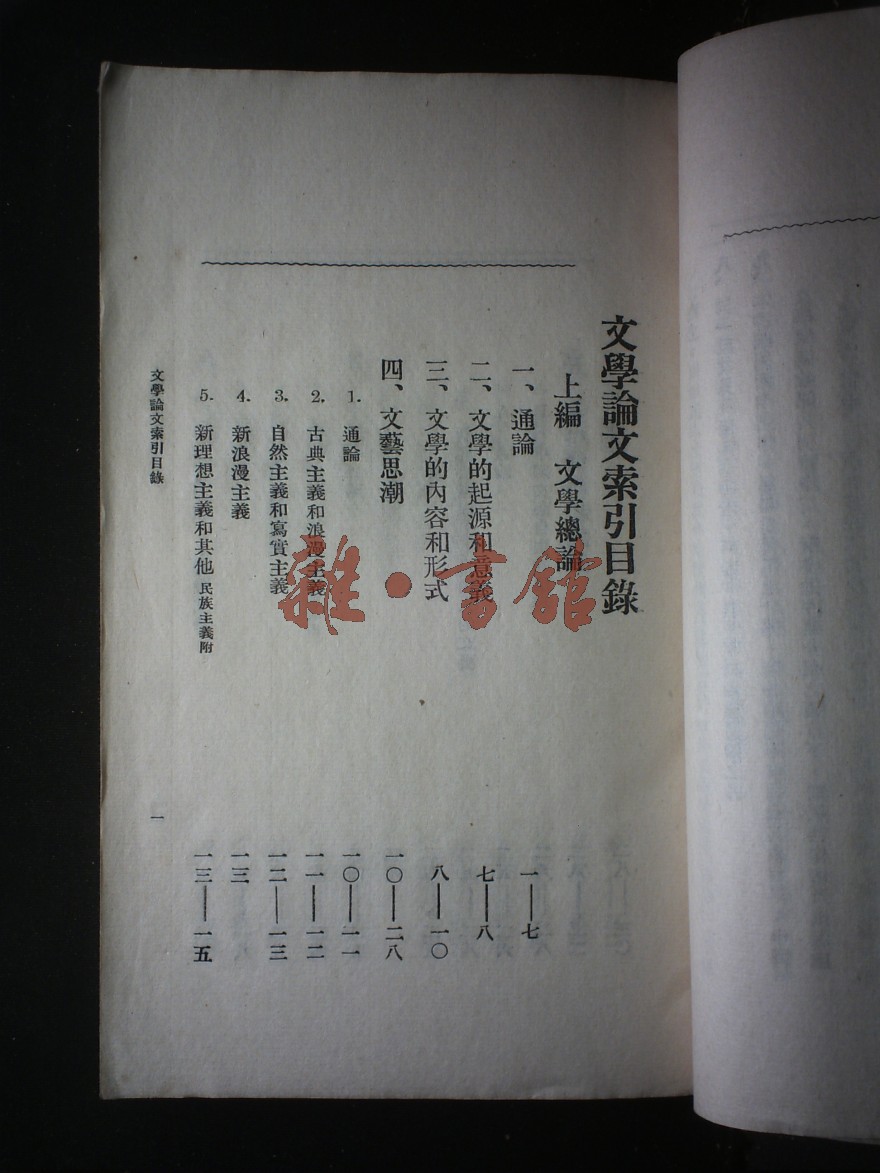 文學論文索引目錄
上編　文學總論
一、通論　一——七
二、文學的起源和意義　七——八
三、文學的內容和形式　八——一〇
四、文藝思潮　一〇——二八
1. 通論　一〇——一一
2. 古典主義和浪漫主義　一一——一二
3. 自然主義和寫實主義　一二——一三
4. 新浪漫主義　一三
5. 新理想主義和其他 民族主義附　一三——一五
文學論文索引目錄　一
雜·書館